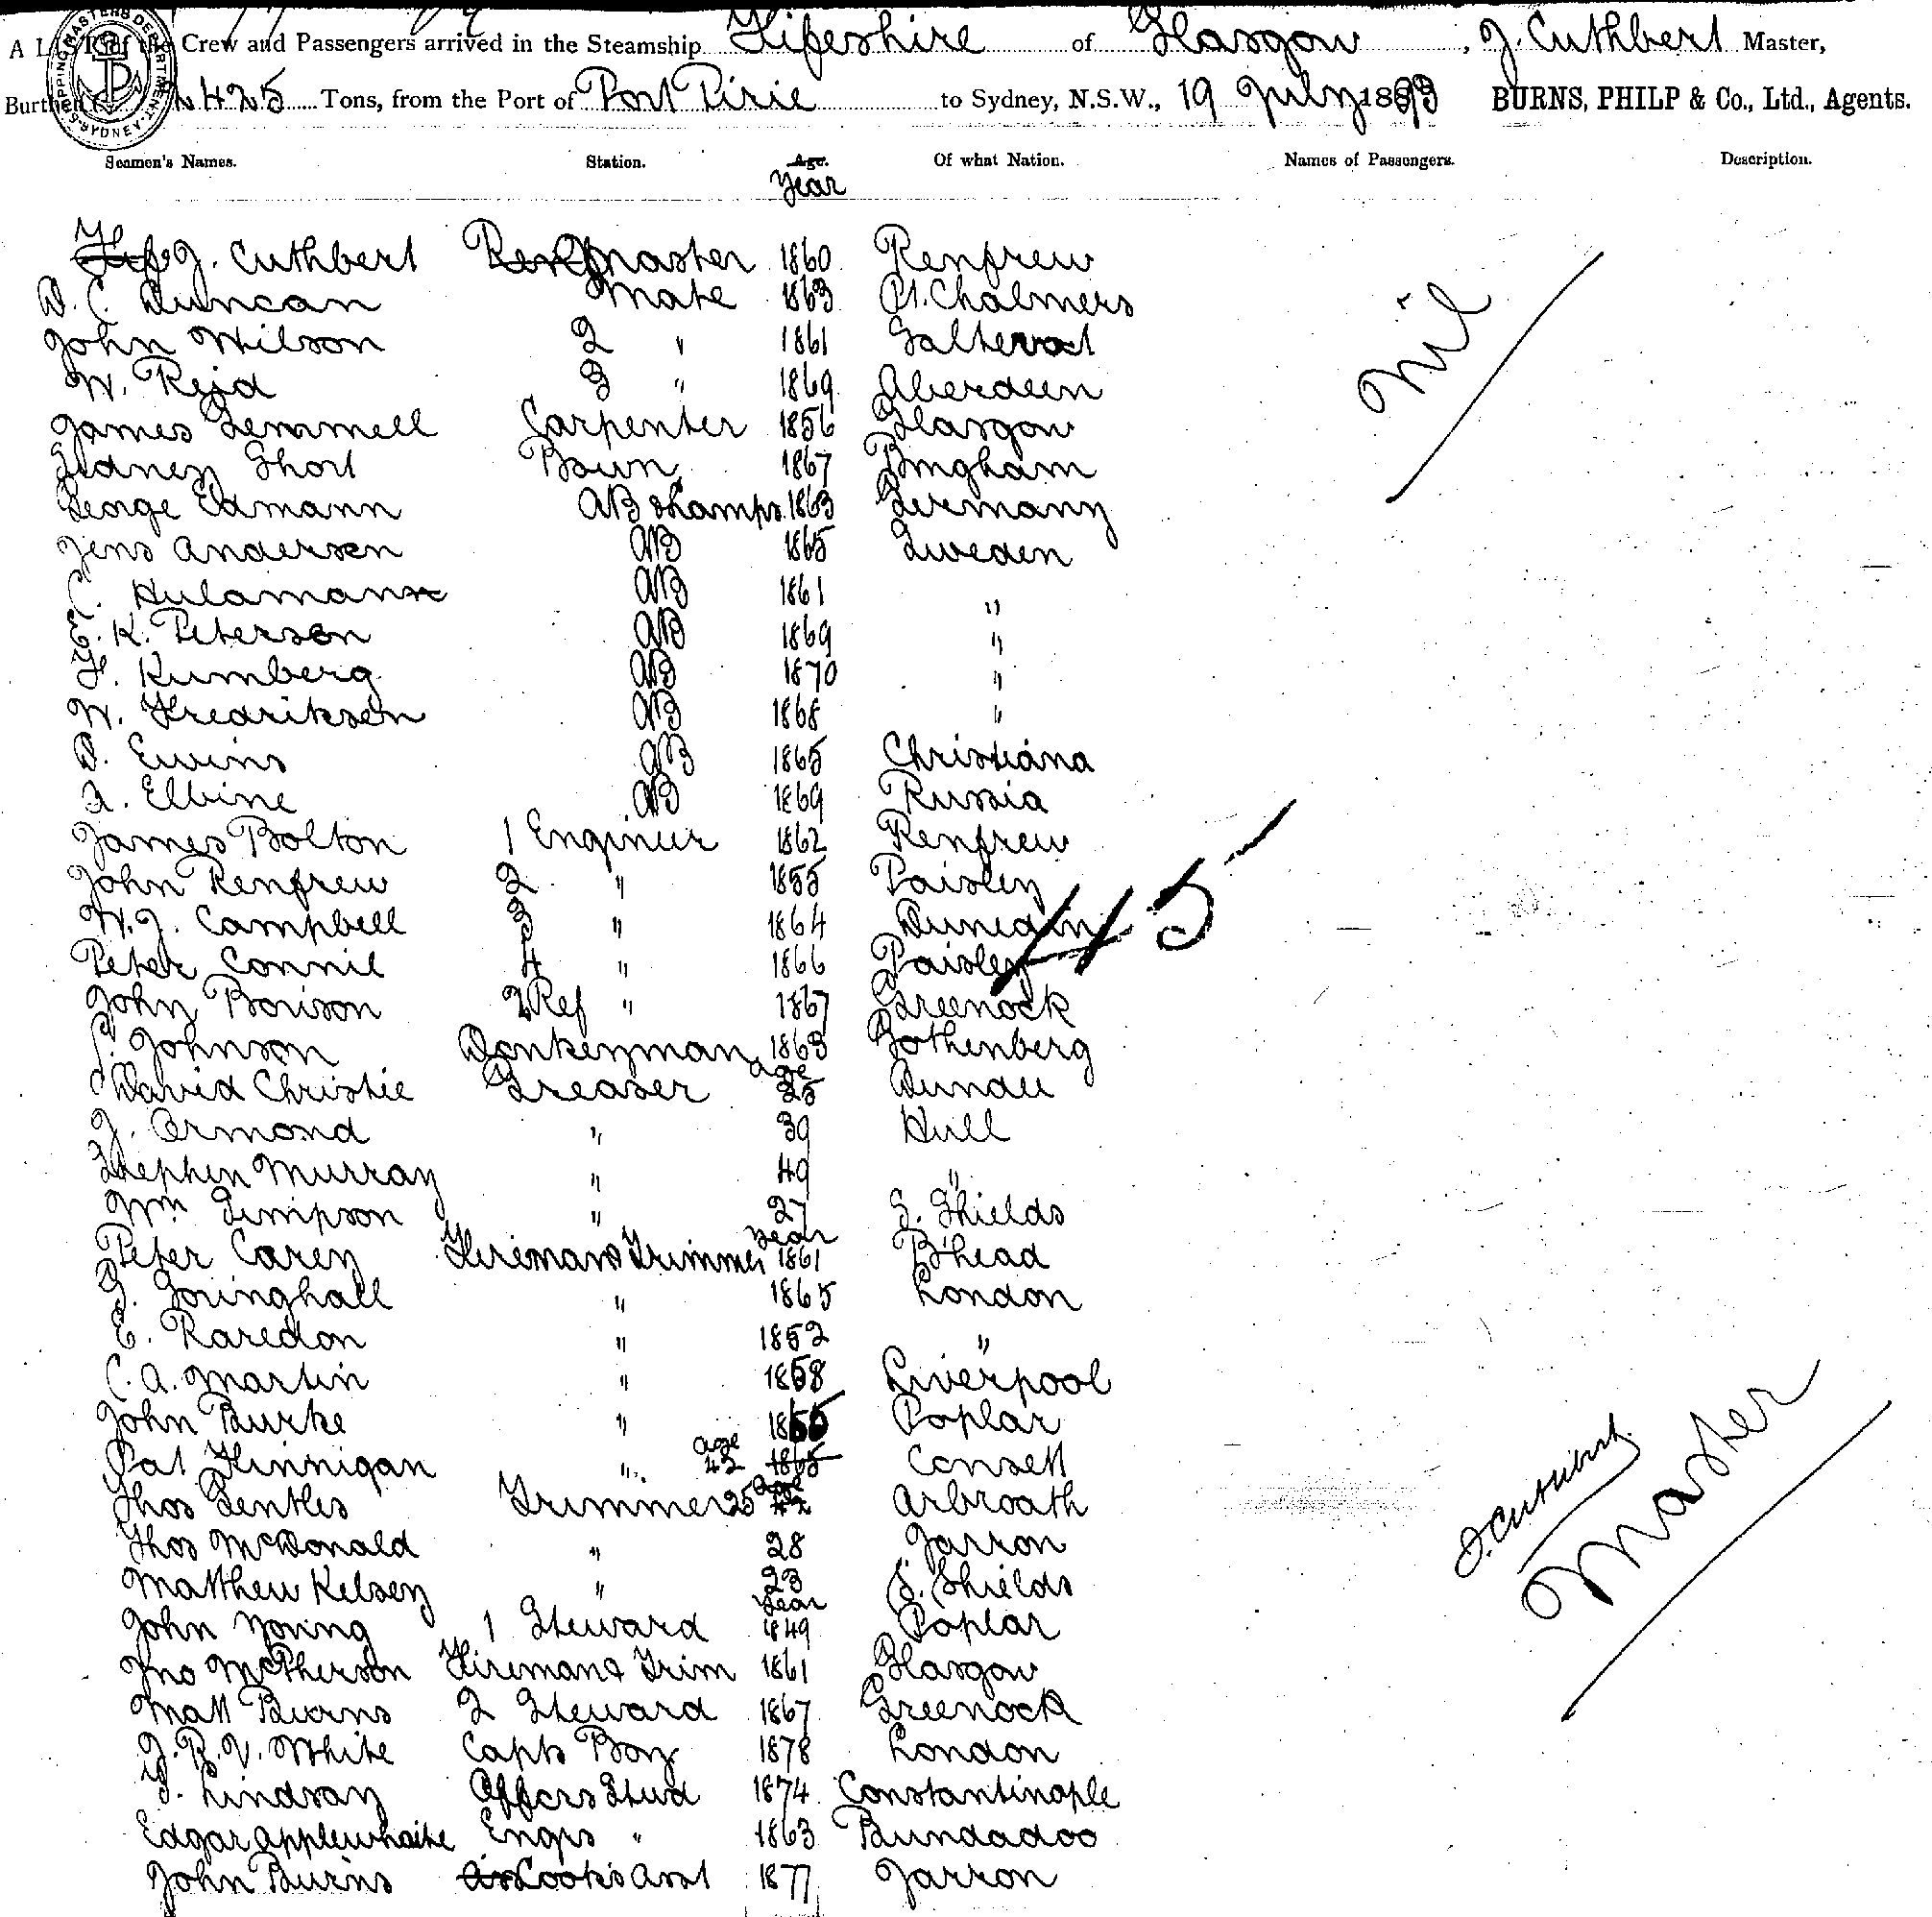 A List of the Crew and Passengers arrived in the Steamship Fifeshire of Glasgow, J. Cuthbert Master,
Burthen 2425 Tons, from the Port of Port Pirie to Sydney, N.S.W., 19 July 1893 BURNS, PHILP & Co., Ltd., Agents.
Seamen's Names. Station. Age. Of what Nation. Names of Passengers. Description.
Year
J. Cuthbert Master 1860 Renfrew
D. C. Duncan Mate 1863 Pt. Chalmers
Nil
John Wilson 2 " 1861
W. Reid 3 " 1869 Aberdeen
James Gemmell Carpenter 1856 Glasgow
Sidney Short Bosun 1867 Bingham
George Edmann AB & Lamps 1863 Germany
Jens Andersen AB 1865 Sweden
C. AB 1861 "
E. K. Peterson AB 1869 "
F. Kumberg AB 1870 "
W. Fredriksen AB 1868 "
D. Ewins AB 1865 Christiana
A. Elbine AB 1869 Russia
James Bolton 1 Engineer 1862 Renfrew
John Renfrew 2 " 1855 Paisley
45
W. J. Campbell 3 " 1864 Dunedin
Peter Connil 4 " 1866 Paisley
John Bowson 2 Ref " 1867 Greenock
Johnson Donkeyman 1863 Gothenberg
age
David Christie Greaser 25 Dundee
J. Ormond " 39 Hull
Stephen Murray " 49 "
Wm Simpson " 27 S. Shields
year
Peter Carey Fireman & Trimmer 1861 B'head
Goringhall " 1865 London
E. Raredon " 1852 "
C. A. Martin " 1858 Liverpool
John Burke " 1855 Poplar
Pat Finnigan " age 42 1865 Consett
Thos Gentles Trimmer 25 age 42 Arbroath
Thos McDonald " 28 Jarron
Matthew Kelsey " 23 S. Shields
year
John Young 1 Steward 1849 Poplar
Jno McPherson Fireman & Trim 1861 Glasgow
Matt Burns 2 Steward 1867 Greenock
J. B. V. White Capts Boy 1878 London
Lindsay Offcrs Stwd 1874 Constantinople
Edgar Applewhaite Engrs " 1863 Bundadoo
John Burns Cooks Asst 1877 Jarron
J. Cuthbert
Master